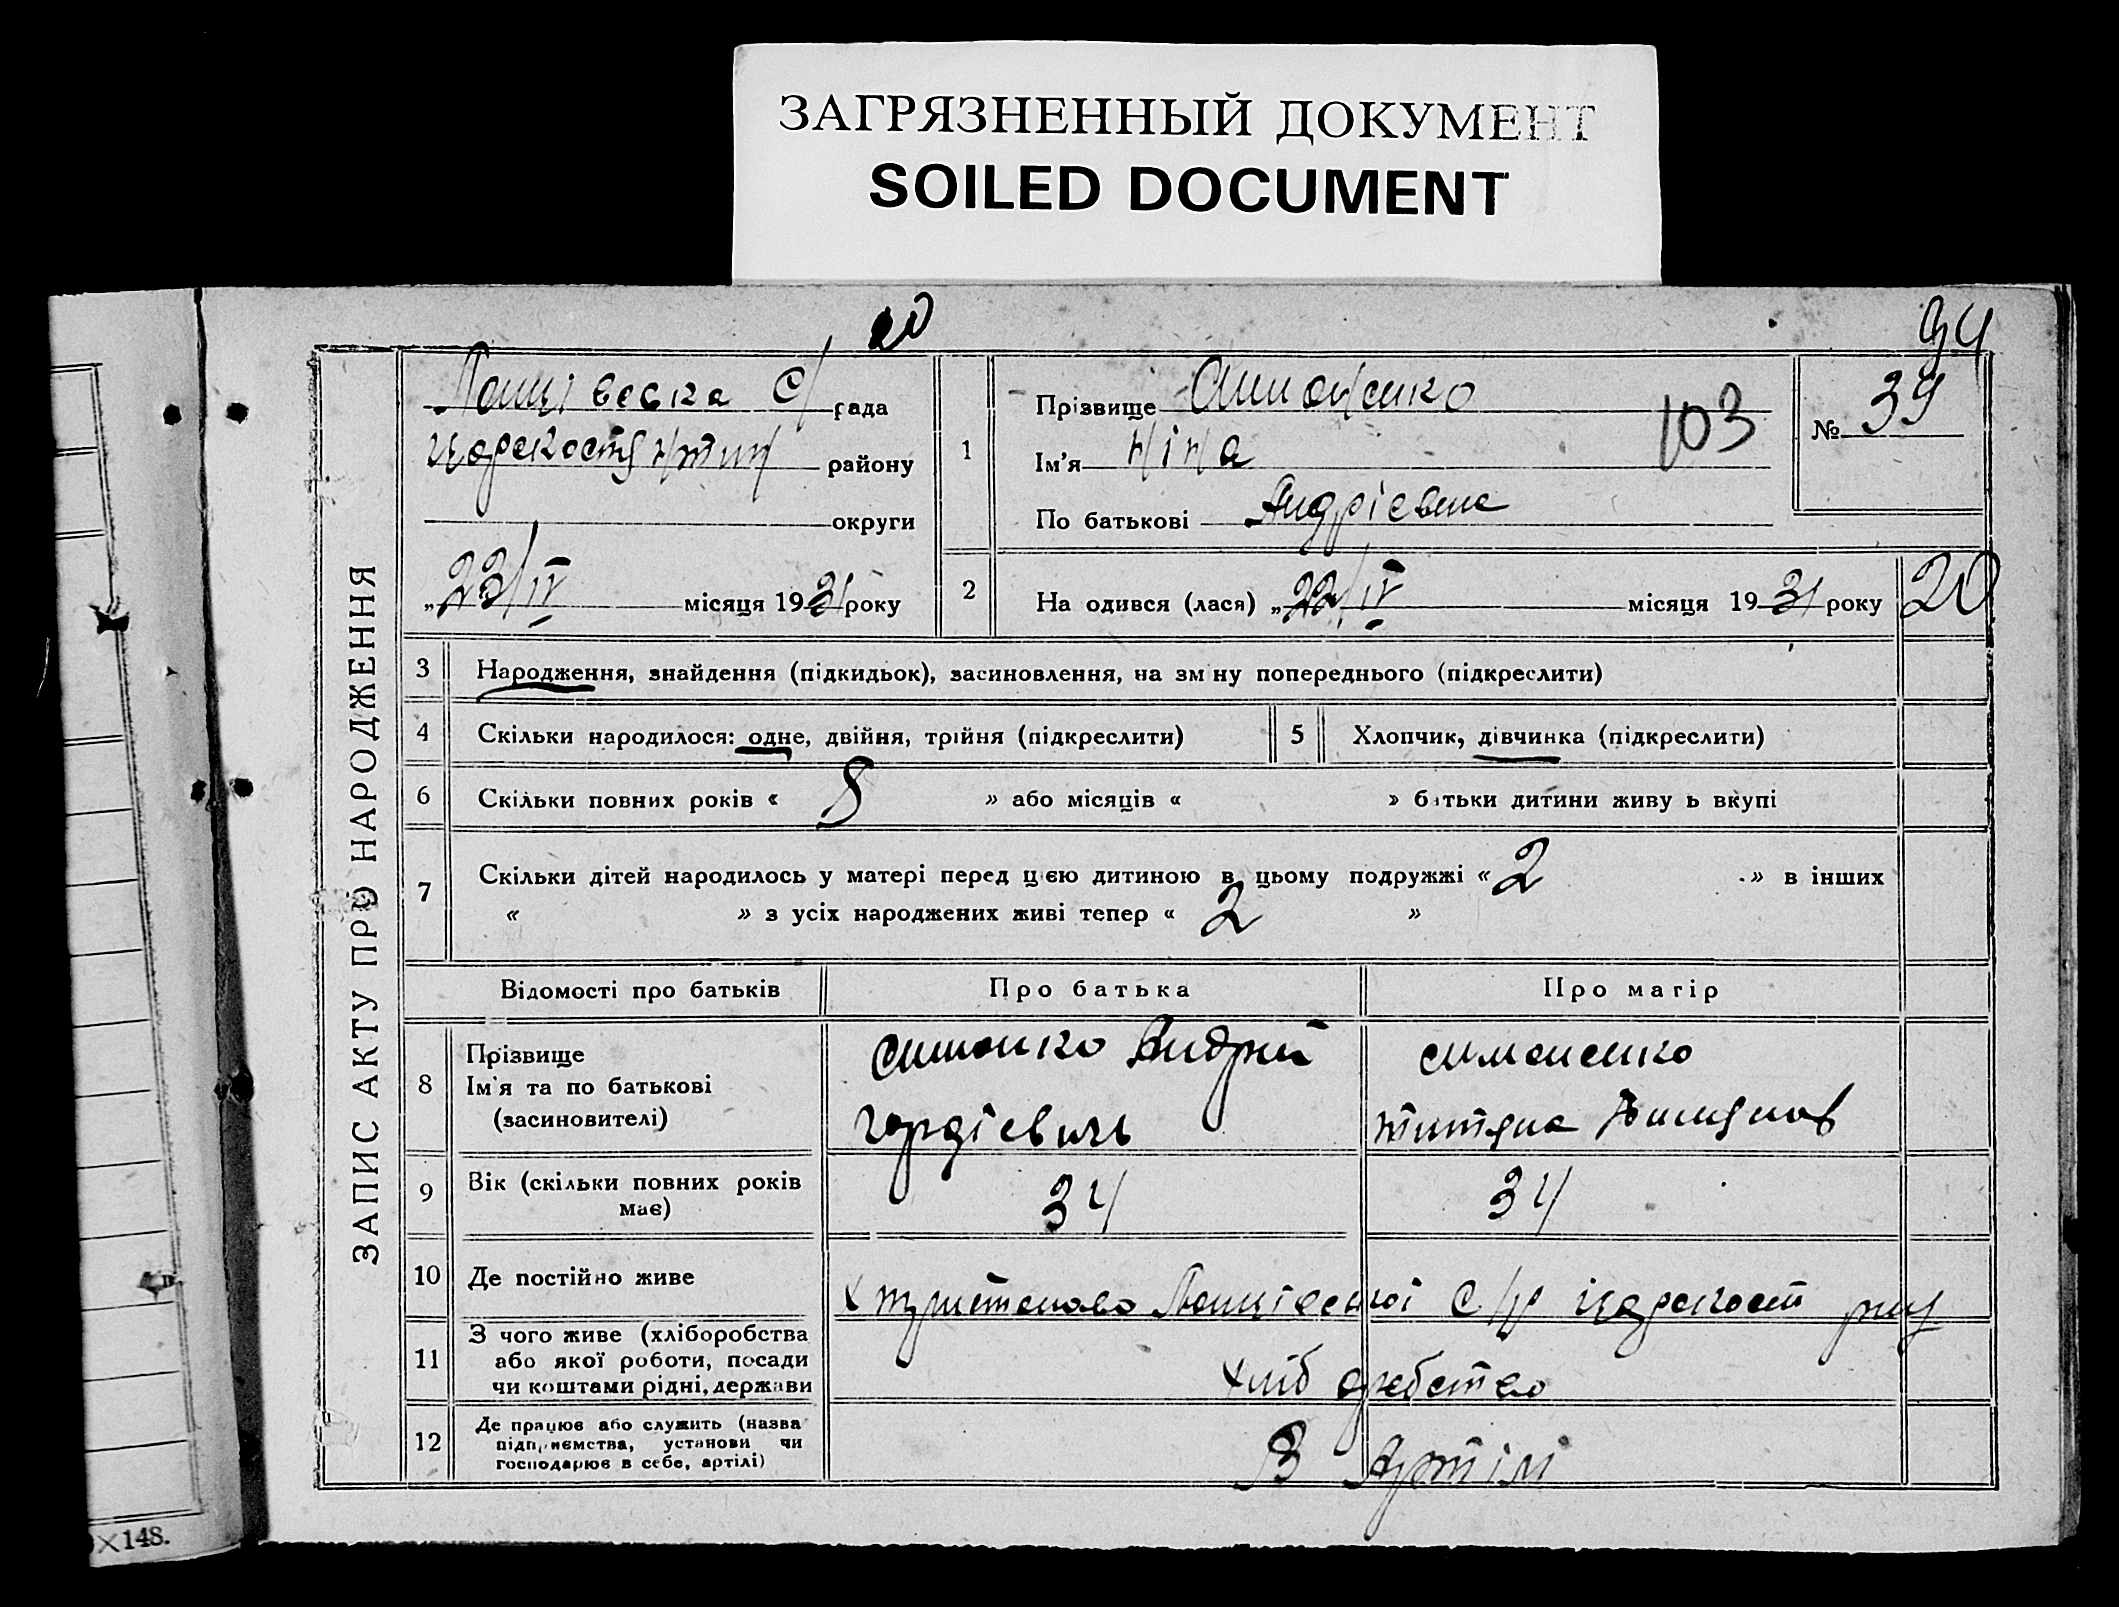 ЗАГРЯЗНЕННЫЙ ДОКУМЕНТ
SOILED DOCUMENT
94
ЗАПИС АКТУ ПРО НАРОДЖЕННЯ
С/рада
району
округи
„23/IV місяця 1931 року
1
Прізвище Симоненко
Ім'я Ніна
По батькові Андрієвна
103
№ 39
2
На одився (лася) „22/IV місяця 1931 року
20
3 Народження, знайдення (підкидьок), засиновлення, на зм ну попереднього (підкреслити)
4 Скільки народилося: одне, двійня, трійня (підкреслити)
5 Хлопчик, дівчинка (підкреслити)
6 Скільки повних років « » або місяців « » батьки дитини живу ь вкупі
7 Скільки дітей народилось у матері перед цією дитиною в цьому подружжі « 2 » в інших
« » з усіх народжених живі тепер « 2 »
Відомості про батьків
Про батька
Про матір
8
Прізвище
Ім'я та по батькові
(засиновителі)
Симонко Андрій
Гордієвичь
Симоненко
9 Вік (скільки повних років
має)
34
34
10 Де постійно живе
С/р
11
З чого живе (хліборобства
або якої роботи, посади
чи коштами рідні, держави
хліб
12
Де працює або служить (назва
підприємства, установи чи
господарює в себе, артілі)
В Артілі
×148.